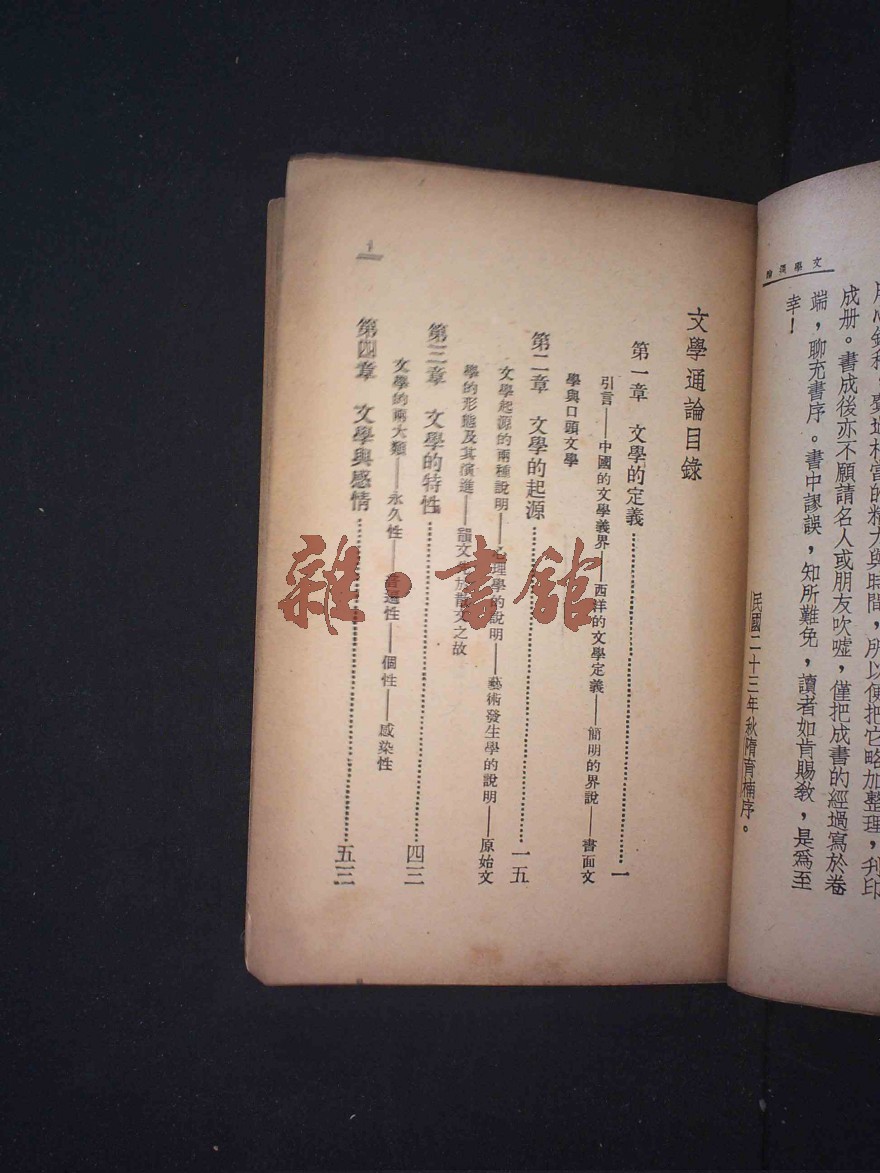 文學通論
成册。書成後亦不願請名人或朋友吹嘘，僅把成書的經過寫於卷
端，聊充書序。書中謬誤，知所難免，讀者如肯賜教，是爲至
幸！
民國二十三年秋隋育楠序。
文學通論目錄
第一章 文學的定義…………一
引言——中國的文學義界——西洋的文學定義——簡明的界說——書面文
學與口頭文學
第二章 文學的起源…………一五
文學起源的兩種說明——心理學的說明——藝術發生學的說明——原始文
學的形態及其演進——韻文 於散文之故
第三章 文學的特性…………四三
文學的兩大類——永久性——普遍性——個性——感染性
第四章 文學與感情…………五三
雜·書館